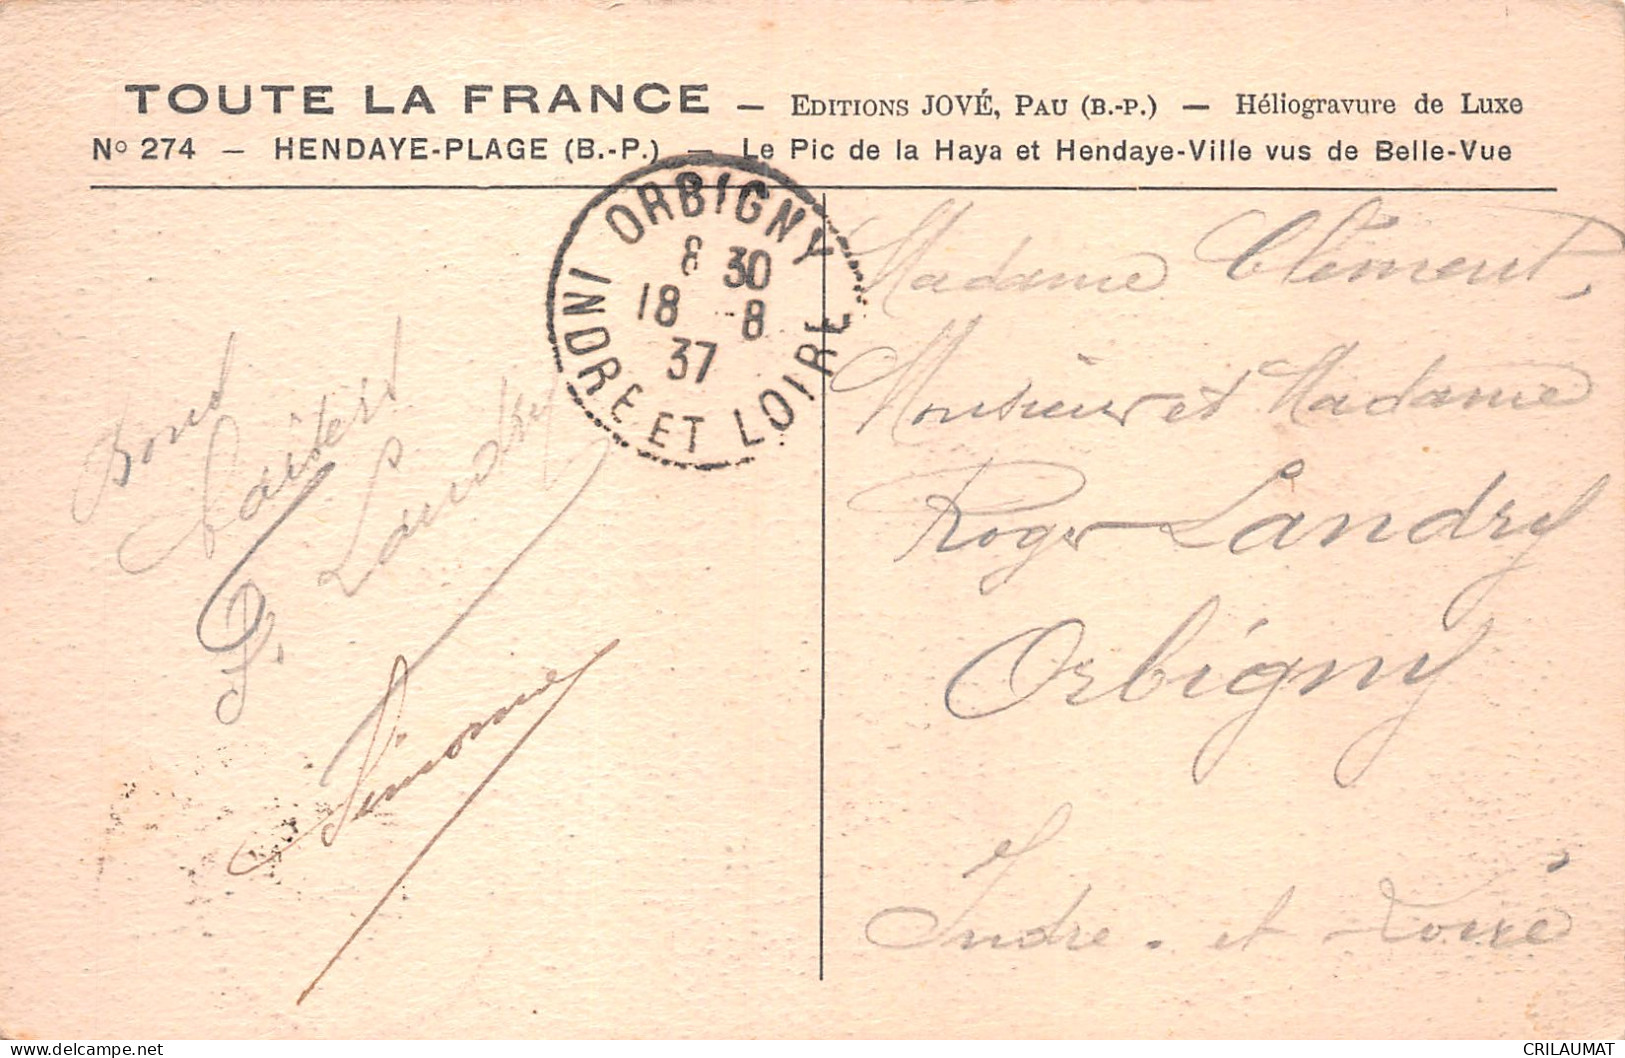 TOUTE LA FRANCE — EDITIONS JOVÉ, PAU (B.-P.) — Héliogravure de Luxe
No 274 — HENDAYE-PLAGE (B.-P.) — Le Pic de la Haya et Hendaye-Ville vus de Belle-Vue
ORBIGNY
8 30
18 -8
37
INDRE ET LOIRE
Bons
baisers
Landry
Simonne
Madame Clément,
Monsieur et Madame
Roger Landry
Orbigny
Indre. et Loire
CRILAUMAT